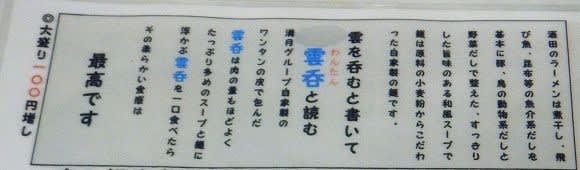 酒田のラーメンは煮干し、飛
び魚、昆布等の魚介系だしを
基本に豚、鳥の動物系だしと
野菜だしで整えた、すっきり
した旨味のある和風スープで
麺は原料の小麦粉からこだわ
った自家製の麺です。
雲を呑むと書いて
雲呑と読む
わんたん
満月グループ自家製の
ワンタンの皮で包んだ
雲呑は肉の量もほどよく
たっぷり多めのスープと麺に
浮かぶ雲呑を一口食べたら
その柔らかい食感は
最高です
◎大盛り一〇〇円増し